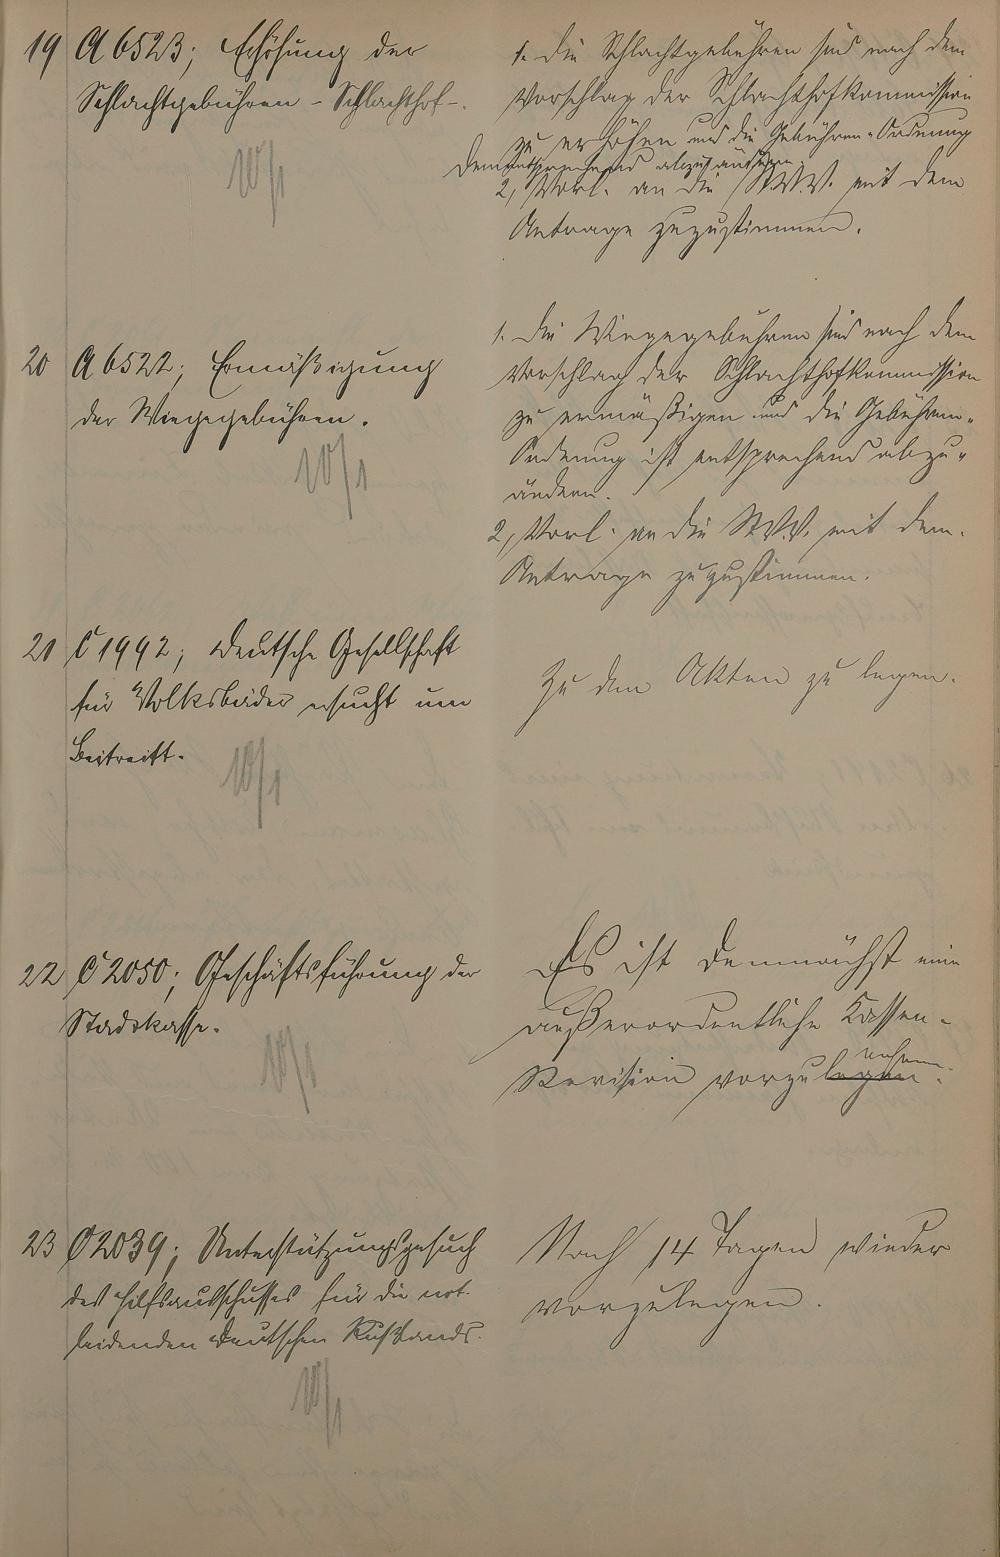 19 A 6523; Erhöhung der
Schlachtgebühren - Schlachthof -.
10/1
1. Die Schlachtgebühren sind nach dem
Vorschlag der Schlachthofkommission
zu erhöhen und die Gebühren-Ordnung
dementsprechend abzuändern.
2, Vorl. an die St.V.V. mit dem
Antrage zuzustimmen.
20 A 6522; Ermäßigung
der Wiegegebühren.
10/1
1. Die Wiegegebühren sind nach dem
Vorschlag der Schlachthofkommission
zu ermäßigen und die Gebühren-
Ordnung ist entsprechend abzu-
ändern.
2, Vorl. an die St.V.V. mit dem.
Antrage zuzustimmen.
21 C 1992; Deutsche Gesellschaft
für Volksbäder ersucht um
Beitritt.
10/1
Zu den Akten zu legen.
22 C 2050; Geschäftsführung der
Stadtkasse.
10/1
Es ist demnächst eine
außerordentliche Kassen-
Revision vorzulegen nehmen.
23 C 2039; Unterstützungsgesuch
des Hilfsausschusses für die not-
leidenden Deutschen Rußlands.
10/1
Nach 14 Tagen wieder
vorzulegen.